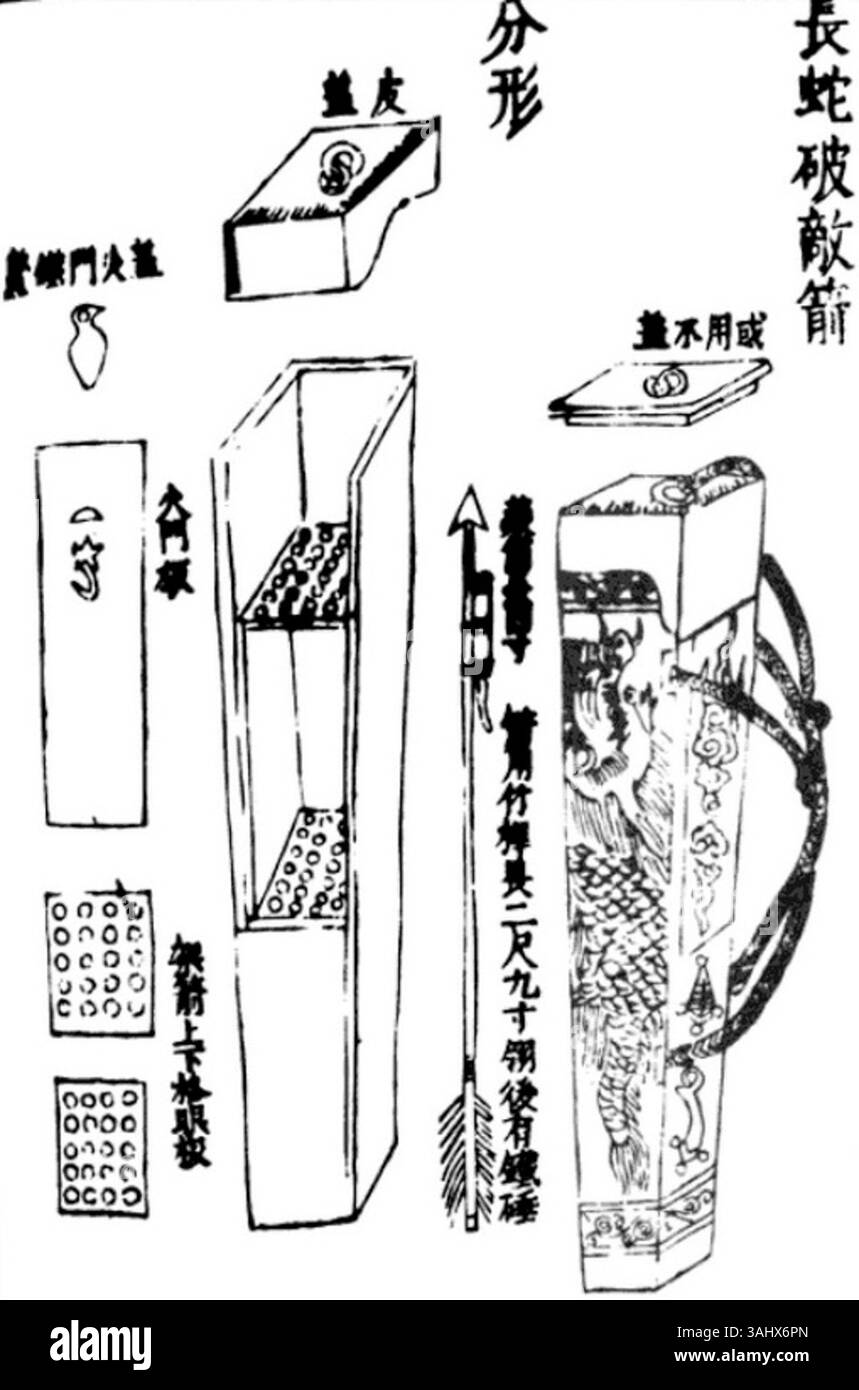 長蛇破敵箭
分形
皮蓋
或用不蓋
蓋火門
火門板
架箭上下格眼板
寸
用竹桿長二尺九寸翎後有鐵硾
alamy
Image ID: 3AHX6PN
www.alamy.com